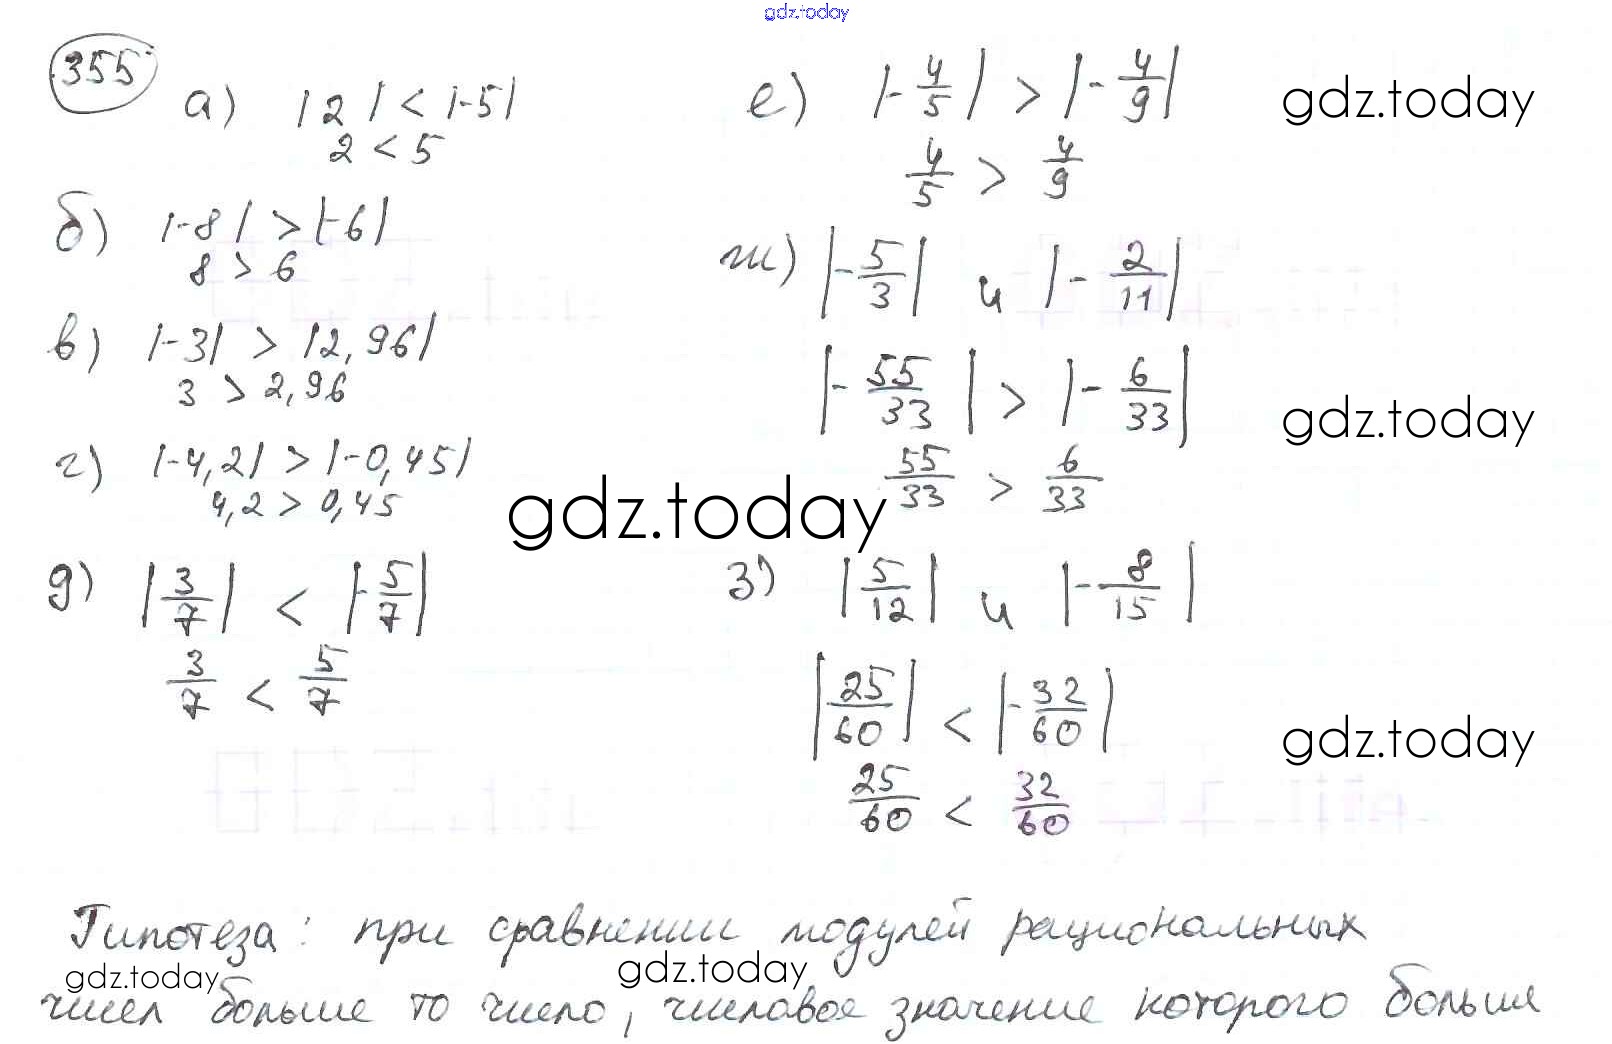 gdz.today
355
а) |2| < |-5|
2 < 5
б) |-8| > |-6|
8 > 6
в) |-3| > |2,96|
3 > 2,96
г) |-4,2| > |-0,45|
4,2 > 0,45
д) |3/7| < |-5/7|
3/7 < 5/7
е) |-4/5| > |-4/9|
4/5 > 4/9
gdz.today
ж) |-5/3| и |-2/11|
|-55/33| > |-6/33|
gdz.today
55/33 > 6/33
gdz.today
з) |5/12| и |-8/15|
|25/60| < |-32/60|
gdz.today
25/60 < 32/60
Гипотеза: при сравнении модулей рациональных
gdz.today
gdz.today
чисел больше то число, числовое значение которого больше